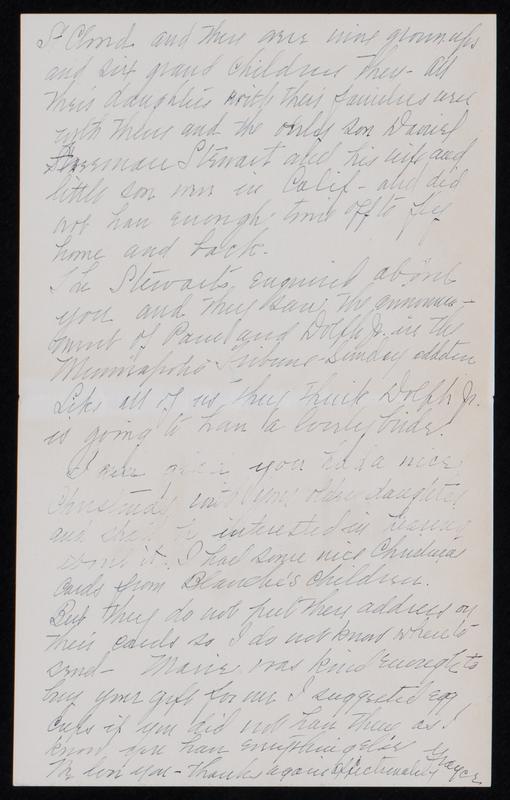 St Cloud and there were nine grownups
and six grand children there - all
their daughters with their families were
with them and the only son Daniel
Freeman Stewart and his wife and
little son were in Calif - and did
not have enough time off to fly
home and back.
The Stewarts enquired about
you and they saw the announce-
ment of Paul and Dolph Jr. in the
Minneapolis Tribune Sunday addition
Like all of us they think Dolph Jr.
is going to have a lovely bride!
I am you had a nice
Christmas with your older daughter
and shall be interested in hearing
about it. I had some nice Christmas
Cards from Blanche's children.
But they do not put their address on
their cards so I do not know where to
send - Marie was kind enough to
buy your gift for me I suggested egg
cups if you did not have them as I
know you have everything else
We love you - thanks again Affectionately Grayce